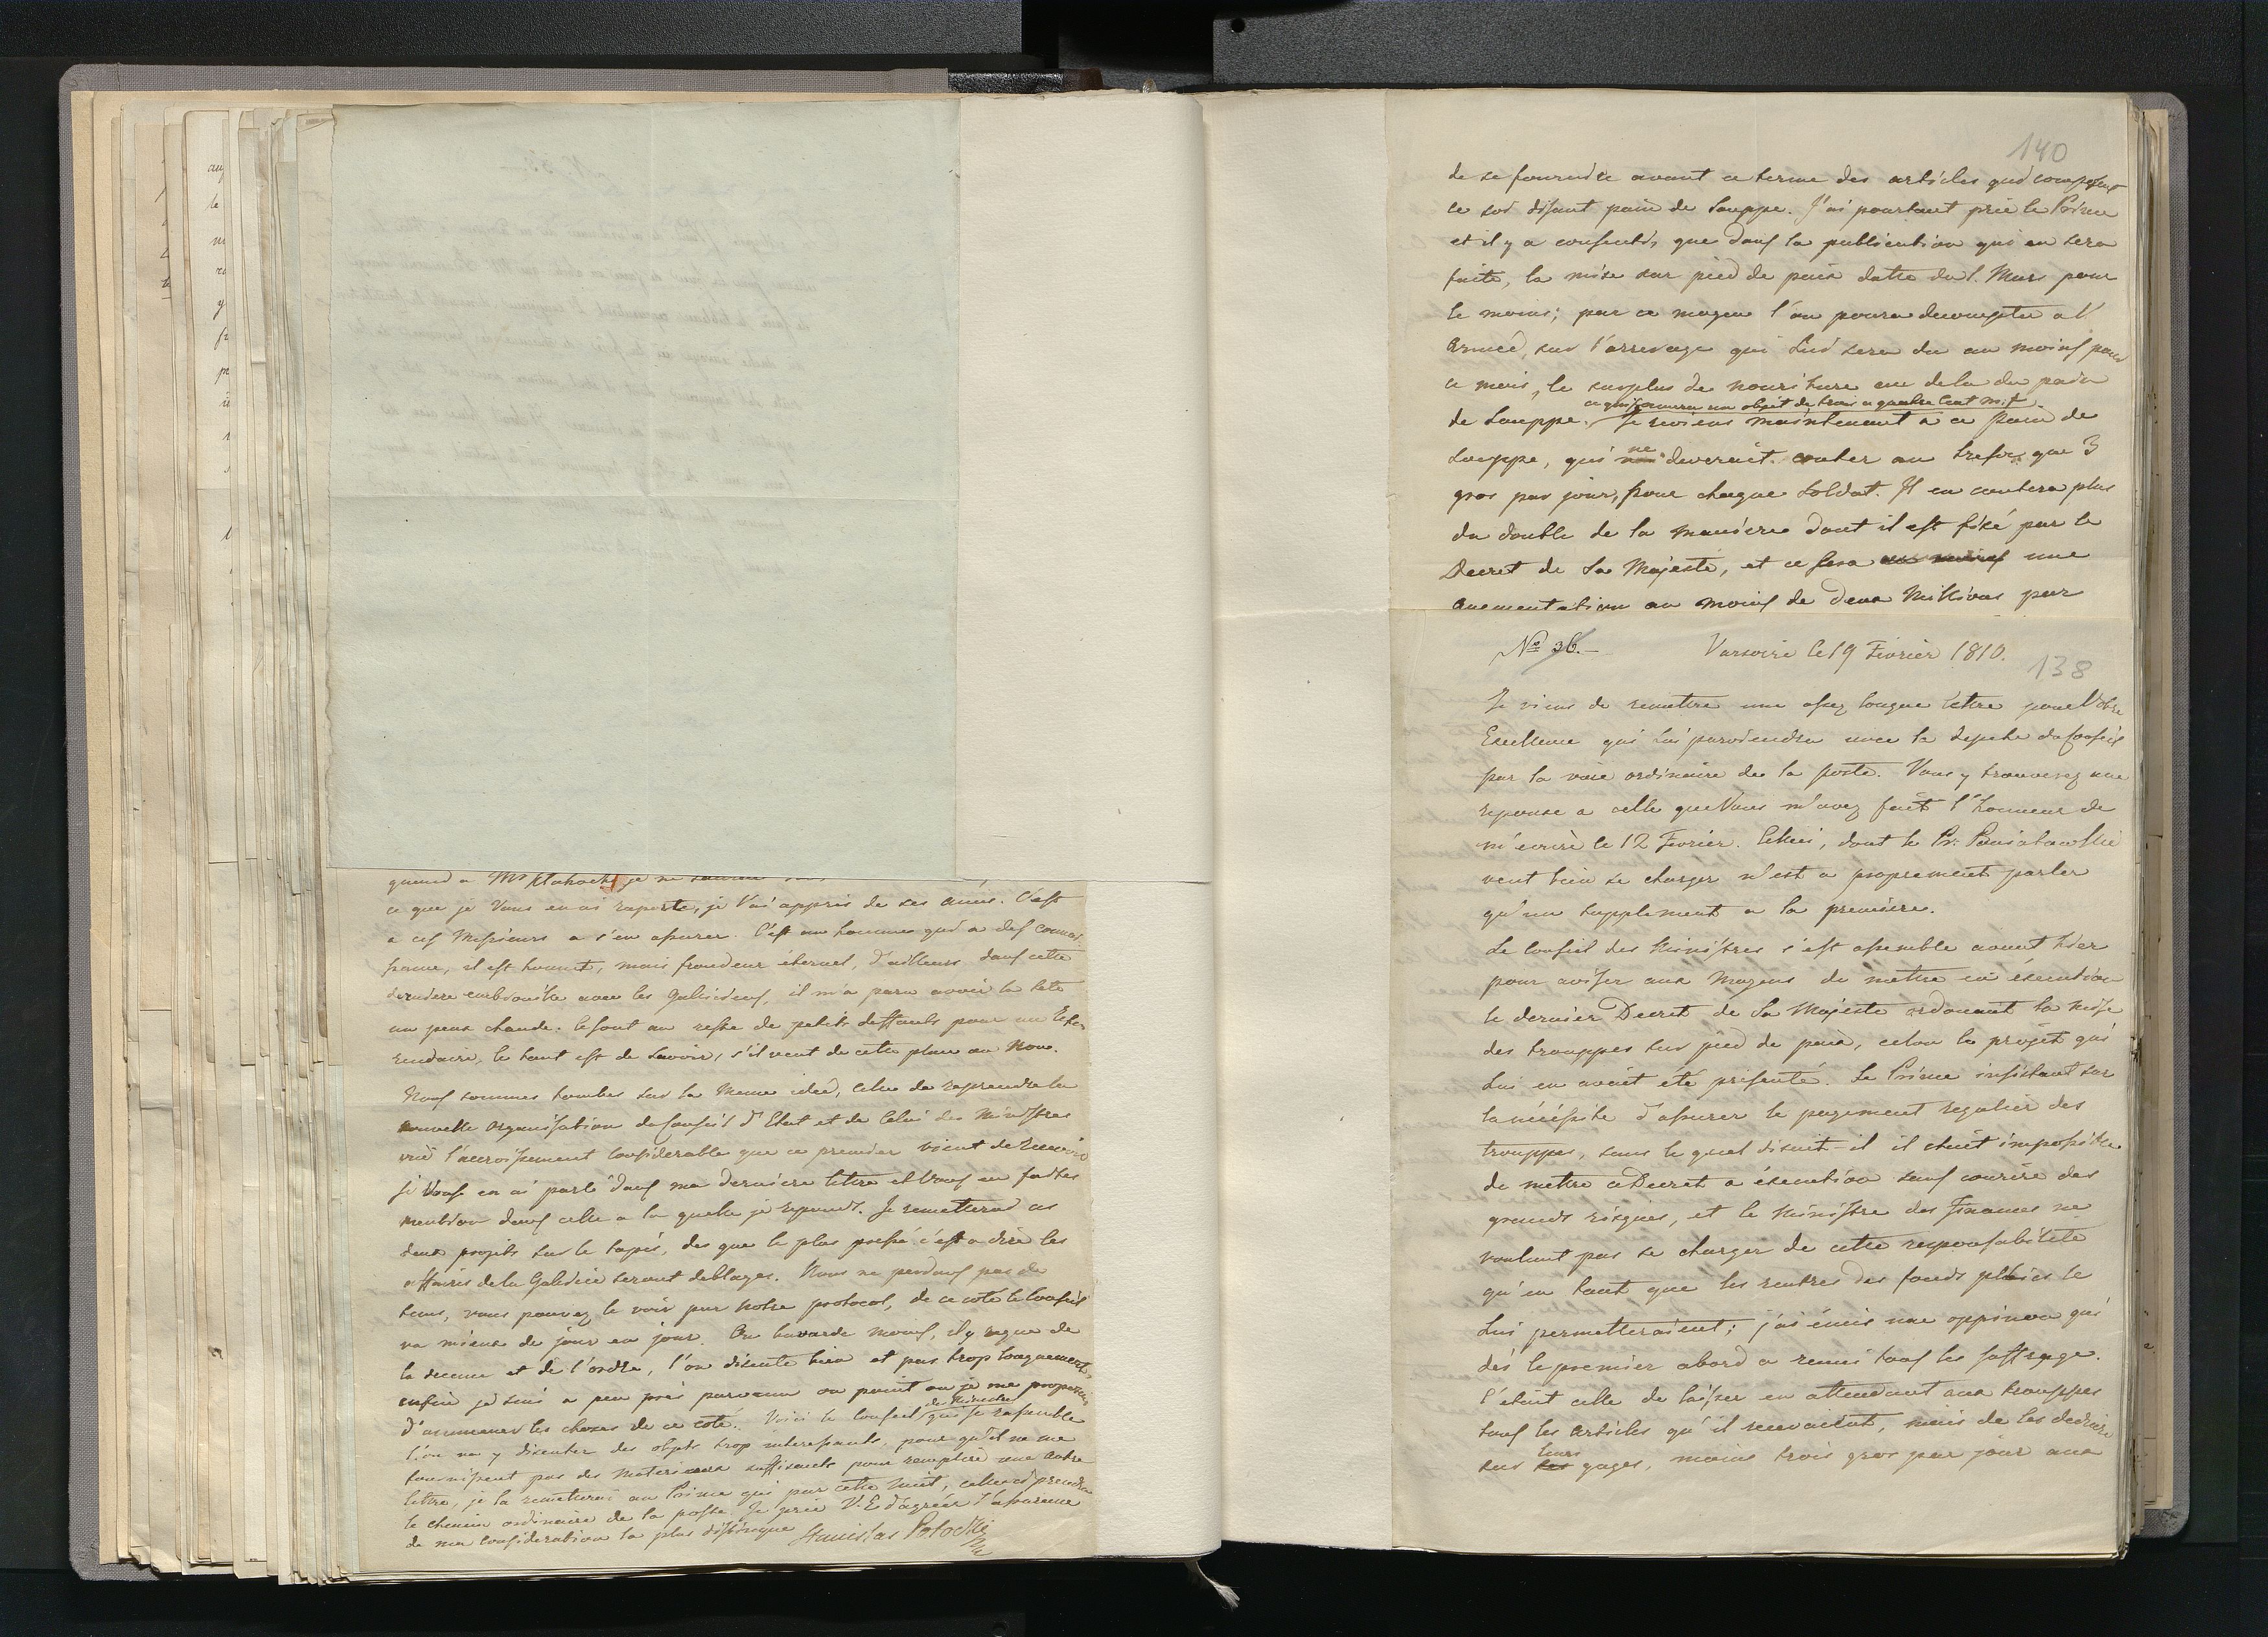 quand a Mr je ne
ce que je Vous en ai raporte, je l'ai appris de ses amis. C'est
a ces Messieurs a s'en assurer. C'est un homme qui a des connais
sance, il est honnet, mais frondeur éternel, d'ailleurs dans cette
derniere avec les Galiciens, il m'a paru avoir la tete
un peux chaude. Ce sont au reste de petits deffauts pour un Refe
rendaire, le tout est de savoir, s'il veut de cette place ou Non.
Nous sommes tombes sur la meme idee, celle de reprendre la
nouvelle organisation du Conseil d'Etat et de Celui des Ministres
vue l'accroissement considerable que ce premier vient de recevoir
je Vous en ai parlé dans ma derniere lettre et Vous en faites
mention dans celle a la quelle je reponds. Je remetterai ces
deux projets sur le tapis, des que le plus pressé c'est a dire les
affaires de la Galicie seront deblayes. Nous ne perdons pas de
tems, vous pouvez le voir par notre protocol, de ce coté le Conseil
va mieux de jour en jour. On bavarde moins, il y regne de
la decence et de l'ordre, l'on discute bien et pas trop longuement,
enfin je suis a peu pres parvenu au point ou je me proposais
d'ammener les choses de ce coté. Voici le Conseil des Ministres qui se rassemble
l'on va y discuter des objets trop interessants, pour qu'il ne me
fournissent pas des materieaux suffisants pour remplire une autre
lettre, je la remetterai au Prince qui part cette nuit, celle-ci prendra
le chemin ordinaire de la poste. Je prie V. E d'agréer l'assurance
de ma consideration la plus distingue Stanislas Potocki
140
de se fournire avant ce terme des articles qui composent
ce soi disant pain de Souppe. J'ai pourtant prie le Prince
et il y a consenti, que dans la publication qui en sera
faite, la mise sur pied de paix datte du 1. Mars pour
le moins; par ce moyen l'on poura decompter a l'
Armee, sur l'arrerage qui lui sera du au moins pour
ce mois, le surplus de nouriture au dela du pain
ce qui formera un objet de trois a quatre cent m. f
de Souppe. Je reviens maintenant a ce pain de
Souppe, qui ne deverait couter au tresor que 3
gros par jour, pour chaque Soldat. Il en coutera plus
du double de la maniere dont il est fixé par le
Decret de Sa Majesté, et ce sera au moins une
aucmentation au moins de deux Millions par
No 36.-
Varsovie le 19 Fevrier 1810.
138
Je viens de remettre une assez longue lettre pour Votre
Excellence qui lui parviendra avec la depeche du Conseil
par la voie ordinaire de la poste. Vous y trouverez une
reponse a celle que Vous m'avez fait l'honneur de
m'écrire le 12 Fevrier. Celleci, dont le Pr: Poniatowski
veut bien se charger n'est a proprement parler
qu'un supplement a la premiere.
Le Conseil des Ministres s'est assemble avant hier
pour aviser aux moyens de mettre en éxecution
le dernier Decret de Sa Majeste ordonant la mise
des trouppes sur pied de paix, celon le projet qui
lui en avait été présenté. Le Prince insistant sur
la nécéssite d'assurer le payement regulier des
trouppes, sans le quel disait-il il était impossible
de mettre ce Decret a éxecution sans courire des
grands risques, et le Ministre des Finances ne
voulant pas se charger de cette responsabilité
qu'en tant que les rentres des fonds publics le
lui permetteraient; j'ai émis une oppinion qui
dès le premier abord a reuni tous les suffrage.
C'etait celle de laisser en attendant aux trouppes
tous les articles qu'il recevaient, mais de les deduire
sur leurs gages, moins trois gros par jour aux